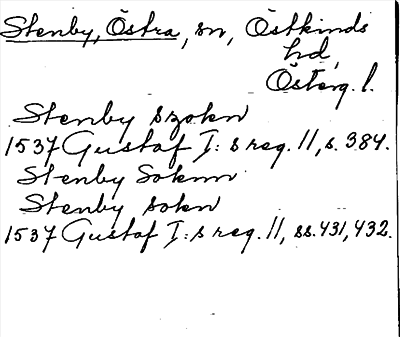 Stenby, Östra, sn, Östkinds
hd,
Österg. l.
Stenby szokn
1537 Gustaf I:s reg. 11, s. 384.
Stenby Soknn
Stenby sokn
1537 Gustaf I:s reg. 11, ss. 431, 432.